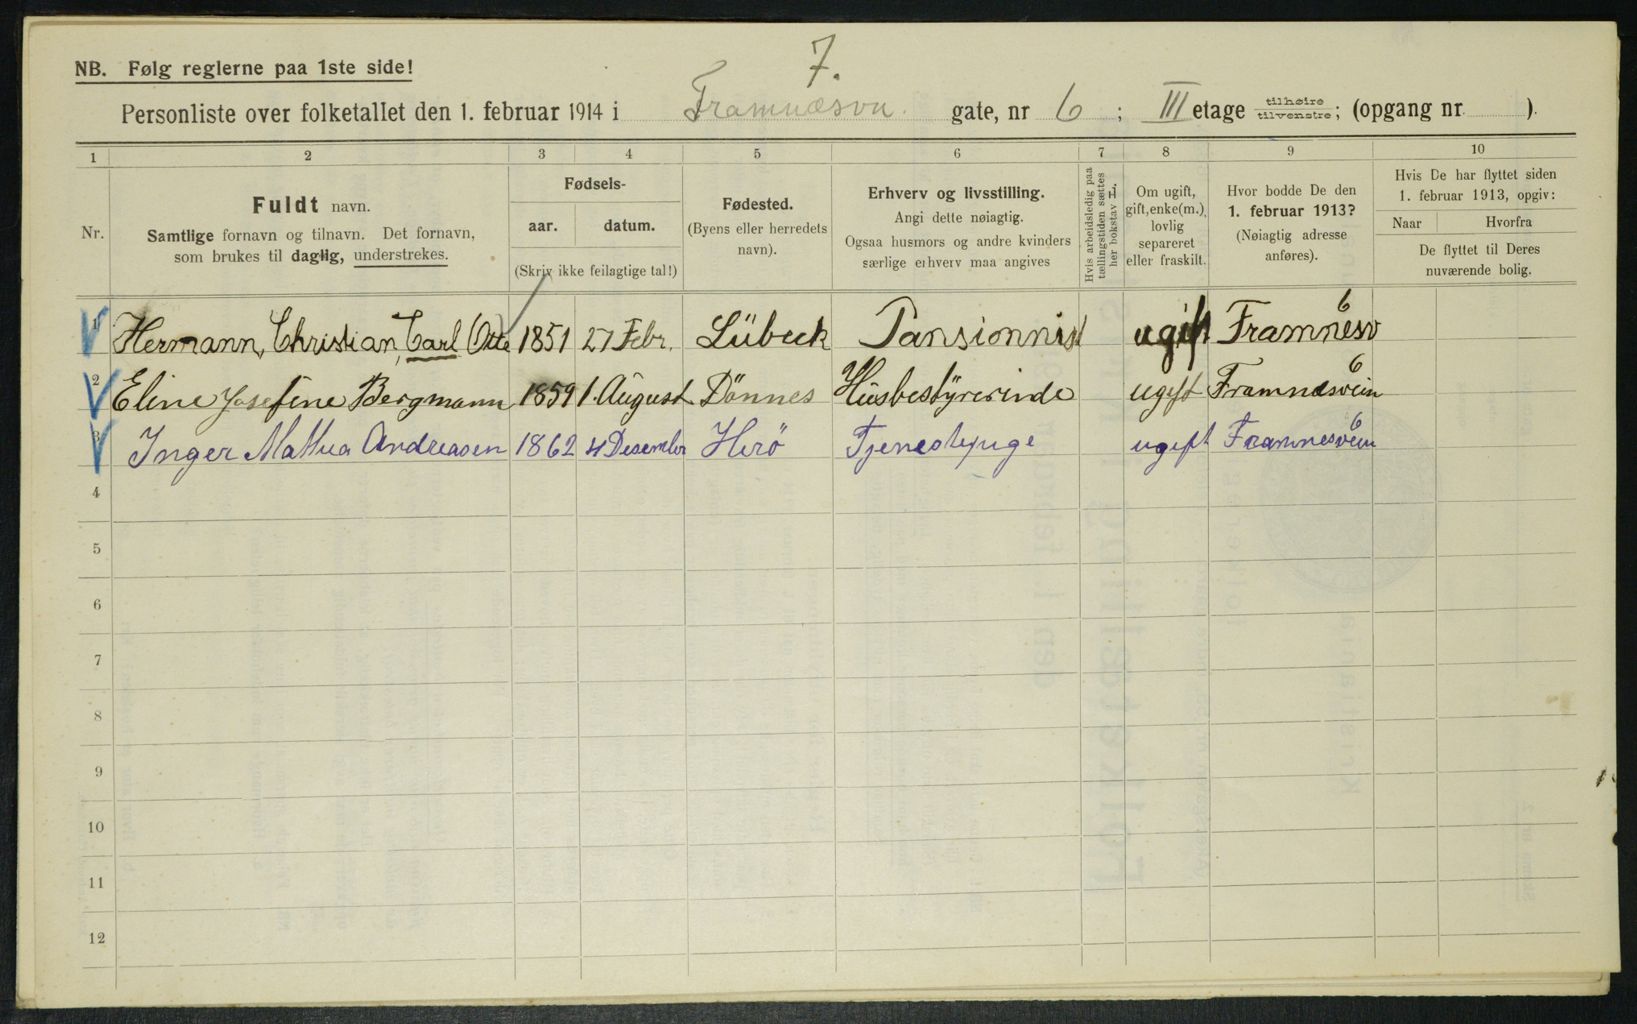 7.
NB. Følg reglerne paa 1ste side!
Personliste over folketallet den 1. februar 1914 i Framnæsvn. gate, nr 6; III etage tilhøire tilvenstre; (opgang nr. ).
1 2 3 4 5 6 7 8 9 10
Nr.
Fuldt navn.
Samtlige fornavn og tilnavn. Det fornavn,
som brukes til daglig, understrekes.
Fødsels-
aar. datum.
(Skriv ikke feilagtige tal!)
Fødested.
(Byens eller herredets
navn).
Erhverv og livsstilling.
Angi dette nøiagtig.
Ogsaa husmors og andre kvinders
særlige erhverv maa angives
Hvis arbeidsledig paa
tællingstiden sættes
her bokstav L.
Om ugift,
gift, enke(m.),
lovlig
separeret
eller fraskilt.
Hvor bodde De den
1. februar 1913?
(Nøiagtig adresse
anføres).
Hvis De har flyttet siden
1. februar 1913, opgiv:
Naar Hvorfra
De flyttet til Deres
nuværende bolig.
1 Hermann, Christian, Carl Otte 1851 27 Febr. Lübeck Pansionnist ugift Framnesv 6
2 Eline Josefine Bergmann 1859 1. August Dönnes Husbestyrerinde ugift Framnæsvein 6
3 Inger Mathea Andreasen 1862 4 Desember Herö Tjenestepige ugift Framnesvein 6
4
5
6
7
8
9
10
11
12